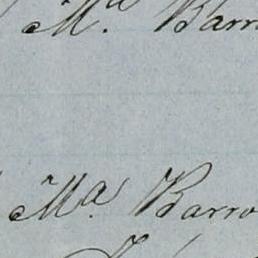 Ma. Barr
Ma. Barro